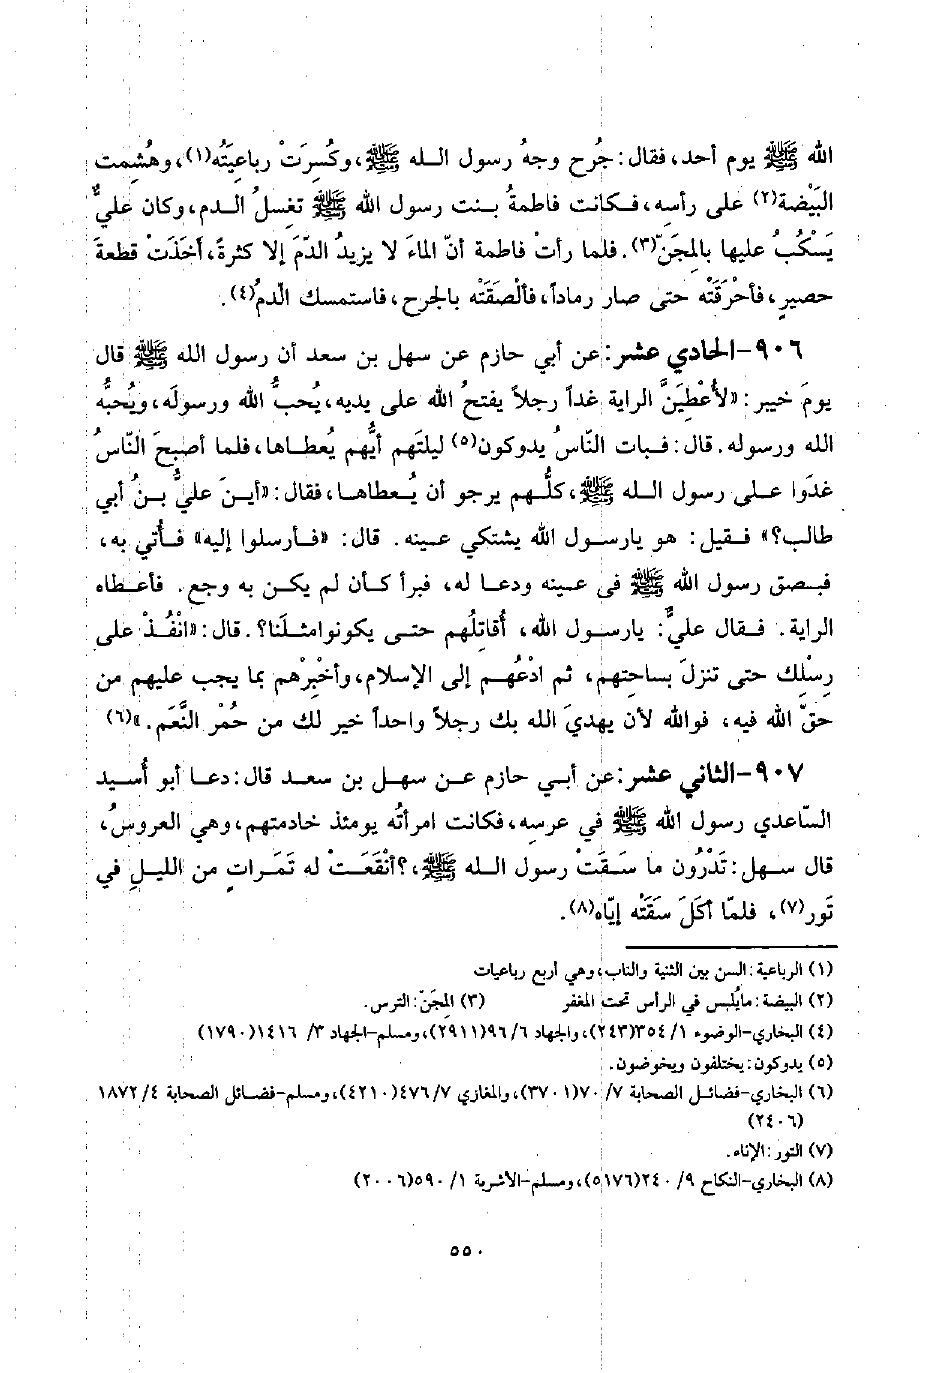 الله ﷺ يوم أحد، فقال: جُرح وجهُ رسول الله ﷺ، وكُسِرَتْ رباعيَتُه(١)، وهُشِمت
البَيْضة(٢) على رأسه، فكانت فاطمةُ بنت رسول الله ﷺ تغسلُ الدم، وكان عليٌّ
يَسْكُبُ عليها بالمِجَنّ(٣). فلما رأتْ فاطمة أنّ الماءَ لا يزيدُ الدّمَ إلا كثرةً، أخَذَتْ قطعةَ
حصيرٍ، فأحْرَقَتْه حتى صار رماداً، فألْصَقَتْه بالجرح، فاستمسك الدمُ(٤).
٩٠٦-الحادي عشر: عن أبي حازم عن سهل بن سعد أن رسول الله ﷺ قال
يومَ خيبر: «لأُعْطِيَنَّ الراية غداً رجلاً يفتحُ الله على يديه، يُحبُّ الله ورسولَه، ويُحبُّه
الله ورسوله. قال: فبات النّاسُ يدوكون(٥) ليلتَهم أيُّهم يُعطاها، فلما أصبحَ النّاسُ
غدَوا على رسول الله ﷺ، كلُّهم يرجو أن يُعطاها، فقال: «أينَ عليُّ بنُ أبي
طالب؟» فقيل: هو يارسول الله يشتكي عينه. قال: «فأرسلوا إليه» فأُتي به،
فبصق رسول الله ﷺ فى عينه ودعا له، فبرأ كأن لم يكن به وجع. فأعطاه
الراية. فقال عليٌّ: يارسول الله، أُقاتلُهم حتى يكونوامثلَنا؟. قال: «انْفُذْ على
رِسْلِك حتى تنزلَ بساحتِهم، ثم ادْعُهم إلى الإسلام، وأخْبِرْهم بما يجب عليهم من
حقّ الله فيه، فوالله لأن يهديَ الله بك رجلاً واحداً خير لك من حُمْر النَّعَم.»(٦)
٩٠٧-الثاني عشر: عن أبي حازم عن سهل بن سعد قال: دعا أبو أُسيد
السّاعدي رسول الله ﷺ في عرسه، فكانت امرأتُه يومئذ خادمتهم، وهي العروسُ،
قال سهل: تَدْرُون ما سَقَتْ رسول الله ﷺ،؟أنْقَعَتْ له تَمَراتٍ من الليلِ في
تَور(٧)، فلمّا أكَلَ سَقَتْه إيّاه(٨).
(١) الرباعية: السن بين الثنية والناب، وهي أربع رباعيات
(٢) البيضة: مايُلبس في الرأس تحت المغفر (٣) المِجَنّ: الترس.
(٤) البخاري-الوضوء ١/ ٣٥٤(٢٤٣)، والجهاد ٦/ ٩٦(٢٩١١)، ومسلم-الجهاد ٣/ ١٤١٦(١٧٩٠)
(٥) يدوكون: يختلفون ويخوضون.
(٦) البخاري-فضائل الصحابة ٧/ ٧٠(٣٧٠١)، والمغازي ٧/ ٤٧٦(٤٢١٠)، ومسلم-فضائل الصحابة ٤/ ١٨٧٢
(٢٤٠٦)
(٧) التور: الإناء.
(٨) البخاري-النكاح ٩/ ٢٤٠(٥١٧٦)، ومسلم-الأشربة ١/ ٥٩٠(٢٠٠٦)
٥٥٠